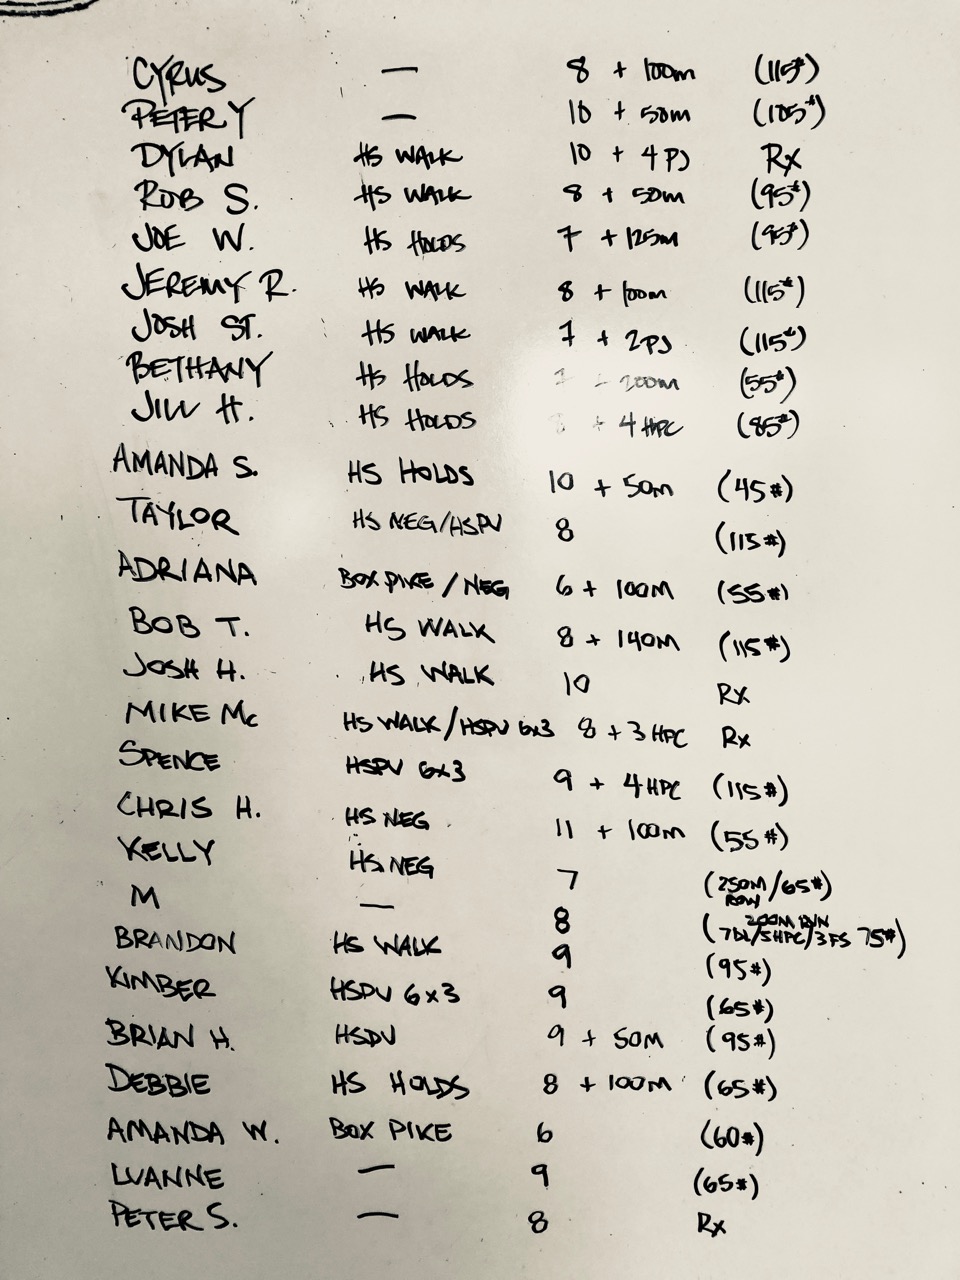 CYRUS — 8 + 100m (115#)
PETER Y — 10 + 50m (105#)
DYLAN HS WALK 10 + 4 PJ Rx
ROB S. HS WALK 8 + 50m (95#)
JOE W. HS HOLDS 7 + 125m (95#)
JEREMY R. HS WALK 8 + 100m (115#)
JOSH ST. HS WALK 7 + 2PJ (115#)
BETHANY HS HOLDS + 200m (55#)
JILL H. HS HOLDS + 4 HPC (85#)
AMANDA S. HS HOLDS 10 + 50M (45#)
TAYLOR HS NEG/HSPU 8 (115#)
ADRIANA BOX PIKE / NEG 6 + 100M (55#)
BOB T. HS WALK 8 + 140M (115#)
JOSH H. HS WALK 10 Rx
MIKE Mc HS WALK/HSPU 6x3 8 + 3 HPC Rx
SPENCE HSPU 6x3 9 + 4HPC (115#)
CHRIS H. HS NEG 11 + 100M (55#)
KELLY HS NEG 7 (250M ROW/65#)
M — 8 (200M RUN 7DL/5HPC/3FS 75#)
BRANDON HS WALK 9 (95#)
KIMBER HSPU 6x3 9 (65#)
BRIAN H. HSPU 9 + 50M (95#)
DEBBIE HS HOLDS 8 + 100M (65#)
AMANDA W. BOX PIKE 6 (60#)
LUANNE — 9 (65#)
PETER S. — 8 Rx